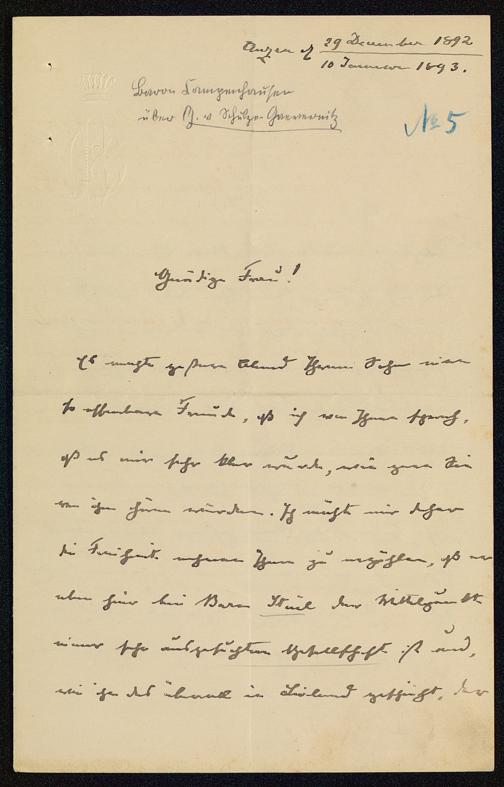 Anzen d. 29 December 1892
10 Januar 1893.
Baron Campenhausen
über G. v Schulze-Gaevernitz
№ 5
Gnädige Frau!
Es machte gestern Abend Ihrem Sohn eine
so offenbare Freude, daß ich von Ihnen sprach,
daß es mir sehr klar wurde, wie gern Sie
von ihm hören würden. Ich möchte mir daher
die Freiheit nehmen Ihnen zu erzählen, daß er
eben hier bei Baron Stael der Mittelpunkt
einer sehr ausgesuchten Gesellschaft ist und,
wie ihm das überall in Livland geschieht, der